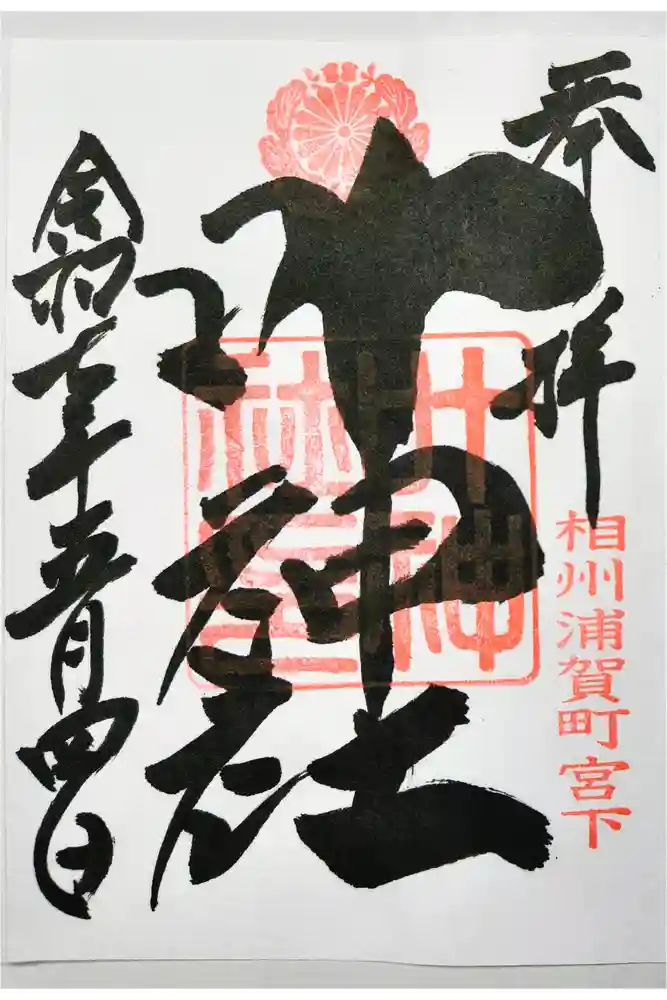 奉拝
相州浦賀町宮下
叶神社
叶神
社
令和七年五月四日